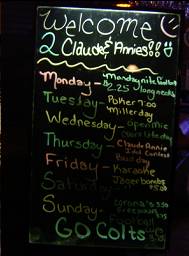 Welcome
2 Claude & Annies!!
Monday - mandaynite football
$2.25 longnecks
Tuesday - Poker 7:00
Millerday
Wednesday - openmic
Thursday - Claude Annie
Idol Contest
Friday - Karaoke
Saturday Jagerbombs
$5.00
Sunday - corona's 3.50
GO COLTS